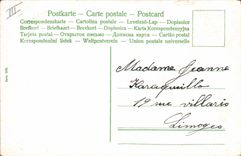 III
Postkarte – Carte postale – Postcard
Correspondenzkarte – Cartolina postale – Levelező-Lap – Dopisnice
Brefkort – Briefkaart – Brevkort – Dopisnica – Karta Korrespondencyjna
Tarjeta postal – Открытое письмо – Дописна карта – Cartão postal
Korespondenční lístek – Weltpostverein – Union postale universelle
Madame Jeanne
Karaquillo
19 rue villaris
Limoges